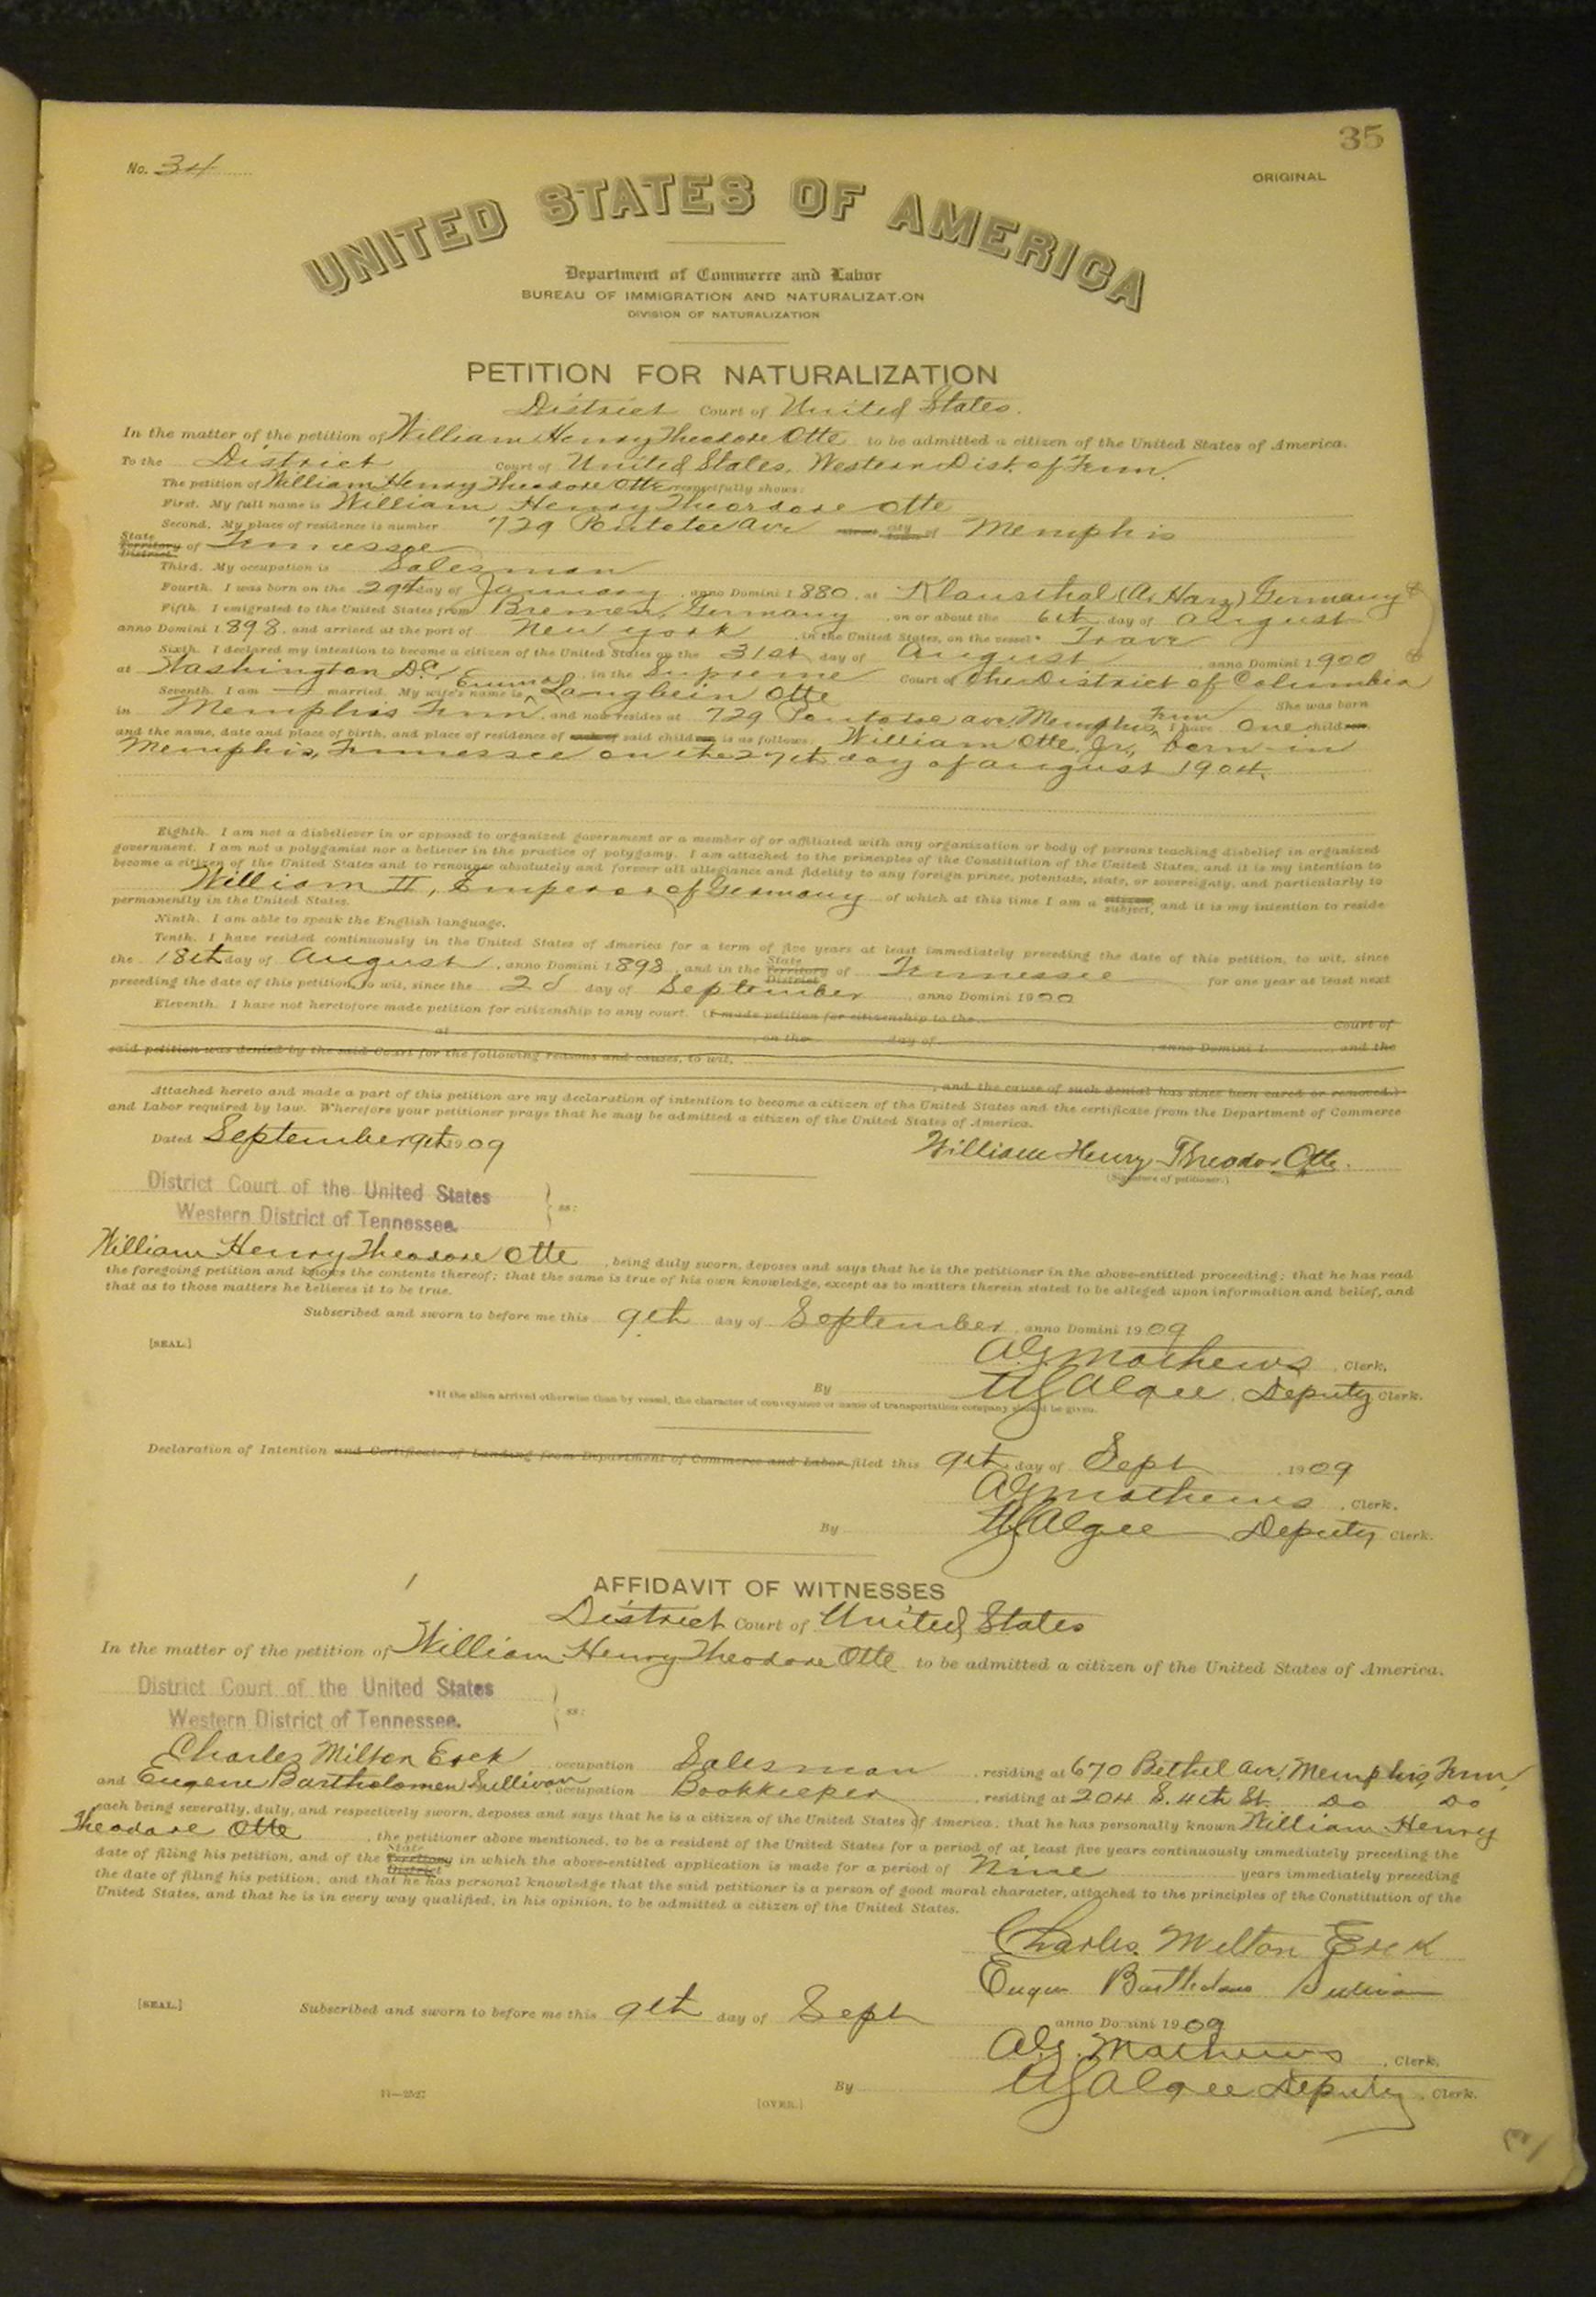 35
No. 34
ORIGINAL
UNITED STATES OF AMERICA
Department of Commerce and Labor
BUREAU OF IMMIGRATION AND NATURALIZATION
DIVISION OF NATURALIZATION
PETITION FOR NATURALIZATION
District Court of United States.
In the matter of the petition of William Henry Theodore Otte to be admitted a citizen of the United States of America.
To the District Court of United States, Western Dist. of Tenn.
The petition of William Henry Theodore Otte respectfully shows:
First. My full name is William Henry Theordore Otte
Second. My place of residence is number 729 Pontotoc Ave street city town of Memphis
State Territory District of Tennessee
Third. My occupation is Salesman
Fourth. I was born on the 29th day of January, anno Domini 1880, at Klausthal (A. Harz) Germany
Fifth. I emigrated to the United States from Bremen, Germany, on or about the 6th day of August
anno Domini 1898, and arrived at the port of New York, in the United States, on the vessel* Trave
Sixth. I declared my intention to become a citizen of the United States on the 31st day of August, anno Domini 1900
at Washington D.C., in the Supreme Court of the District of Columbia
Seventh. I am married. My wife's name is Emma Langbein Otte She was born
in Memphis Tenn, and now resides at 729 Pontotoc ave, Memphis, Tenn I have One children
and the name, date and place of birth, and place of residence of each of said children is as follows: William Otte, Jr., born in
Memphis, Tennessee on the 27th day of August 1904.
Eighth. I am not a disbeliever in or opposed to organized government or a member of or affiliated with any organization or body of persons teaching disbelief in organized
government. I am not a polygamist nor a believer in the practice of polygamy. I am attached to the principles of the Constitution of the United States, and it is my intention to
become a citizen of the United States and to renounce absolutely and forever all allegiance and fidelity to any foreign prince, potentate, state, or sovereignty, and particularly to
William II, Emperor of Germany of which at this time I am a citizen subject, and it is my intention to reside
permanently in the United States.
Ninth. I am able to speak the English language.
Tenth. I have resided continuously in the United States of America for a term of five years at least immediately preceding the date of this petition, to wit, since
the 18th day of August, anno Domini 1898, and in the State Territory District of Tennessee for one year at least next
preceding the date of this petition, to wit, since the 2d day of September, anno Domini 1900
Eleventh. I have not heretofore made petition for citizenship to any court. (I made petition for citizenship to the
Court of at on the day of anno Domini 1 and the
said petition was denied by the said Court for the following reasons and causes, to wit,
, and the cause of such denial has since been cured or removed.)
Attached hereto and made a part of this petition are my declaration of intention to become a citizen of the United States and the certificate from the Department of Commerce
and Labor required by law. Wherefore your petitioner prays that he may be admitted a citizen of the United States of America.
Dated September 9th 1909
William Henry Theodor Otte.
(Signature of petitioner.)
District Court of the United States
Western District of Tennessee.
ss:
William Henry Theodore Otte, being duly sworn, deposes and says that he is the petitioner in the above-entitled proceeding; that he has read
the foregoing petition and knows the contents thereof; that the same is true of his own knowledge, except as to matters therein stated to be alleged upon information and belief, and
that as to those matters he believes it to be true.
Subscribed and sworn to before me this 9th day of September, anno Domini 1909
[SEAL.]
Mathews, Clerk.
By Algee, Deputy Clerk.
*If the alien arrived otherwise than by vessel, the character of conveyance or name of transportation company should be given.
Declaration of Intention and Certificate of Landing from Department of Commerce and Labor filed this 9th day of Sept, 1909
Mathews, Clerk.
By Algee Deputy Clerk.
AFFIDAVIT OF WITNESSES
District Court of United States
In the matter of the petition of William Henry Theodore Otte to be admitted a citizen of the United States of America.
District Court of the United States
Western District of Tennessee.
ss:
Charles Milton Esek, occupation Salesman, residing at 670 Bethel Ave, Memphis, Tenn,
and Eugene Bartholomew Sullivan, occupation Bookkeeper, residing at 204 S. 4th St. Do Do
each being severally, duly, and respectively sworn, deposes and says that he is a citizen of the United States of America; that he has personally known William Henry
Theodore Otte, the petitioner above mentioned, to be a resident of the United States for a period of at least five years continuously immediately preceding the
date of filing his petition, and of the State Territory District in which the above-entitled application is made for a period of Nine years immediately preceding
the date of filing his petition; and that he has personal knowledge that the said petitioner is a person of good moral character, attached to the principles of the Constitution of the
United States, and that he is in every way qualified, in his opinion, to be admitted a citizen of the United States.
Charles Milton Esek
Eugene Bartholomew Sullivan
[SEAL.]
Subscribed and sworn to before me this 9th day of Sept anno Domini 1909
Mathews, Clerk.
By Algee Deputy Clerk.
11—2527
[OVER.]